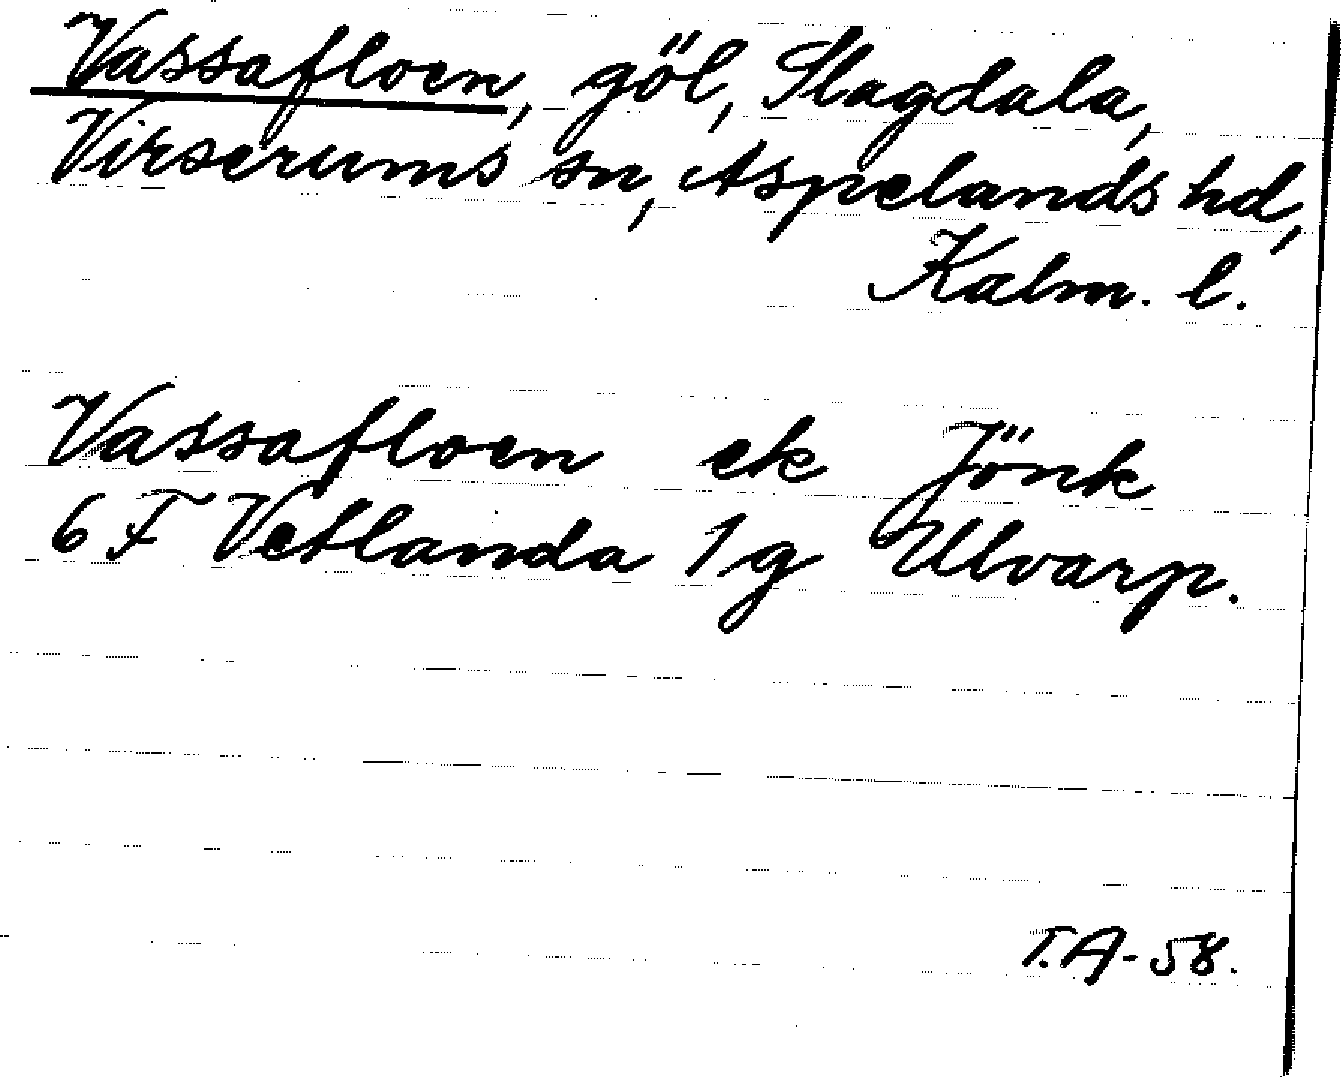 Vassafloen, göl, Slagdala,
Virserums sn, Aspelands hd,
Kalm. l.
Vassafloen ek Jönk
6 F Vetlanda 1 g Ulvarp.
T.A-58.